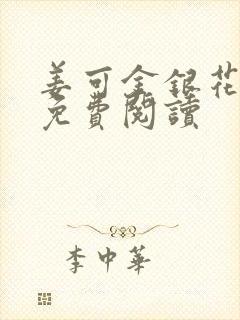 姜可金銀花
免費閱讀
李中華